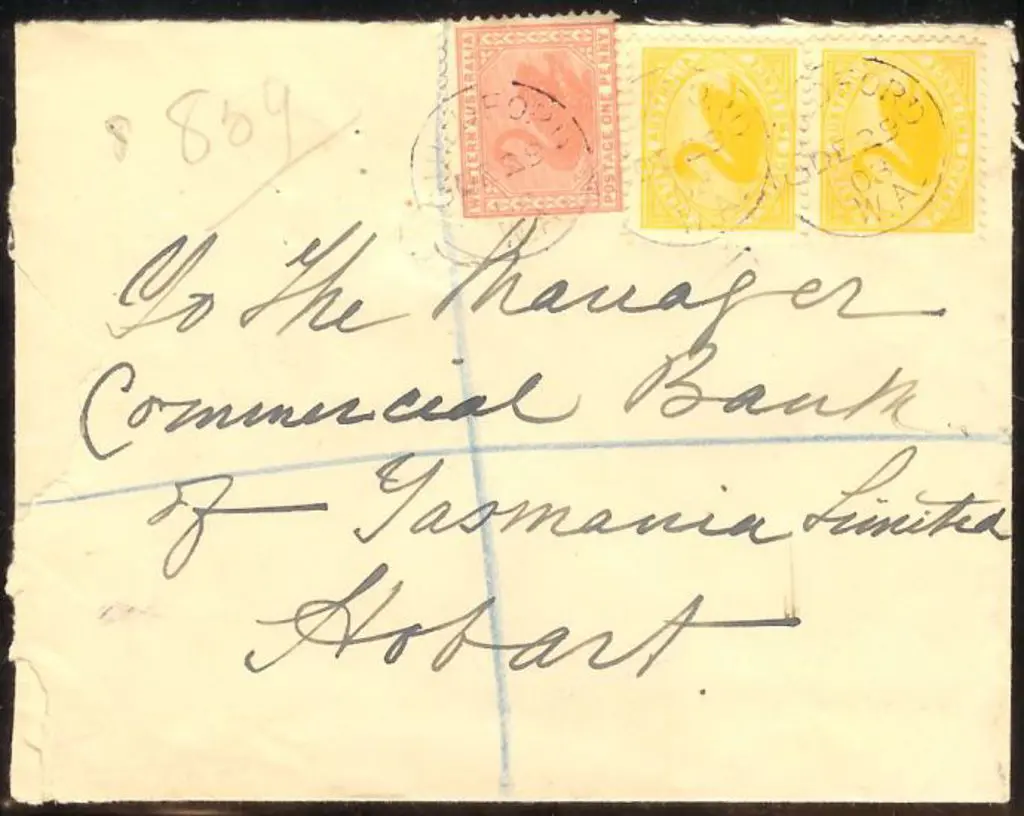 WESTERN AUSTRALIA
POSTAGE ONE PENNY
FORD
DE 29
09
W.A.
859
To The Manager
Commercial Bank
of Tasmania Limited
Hobart